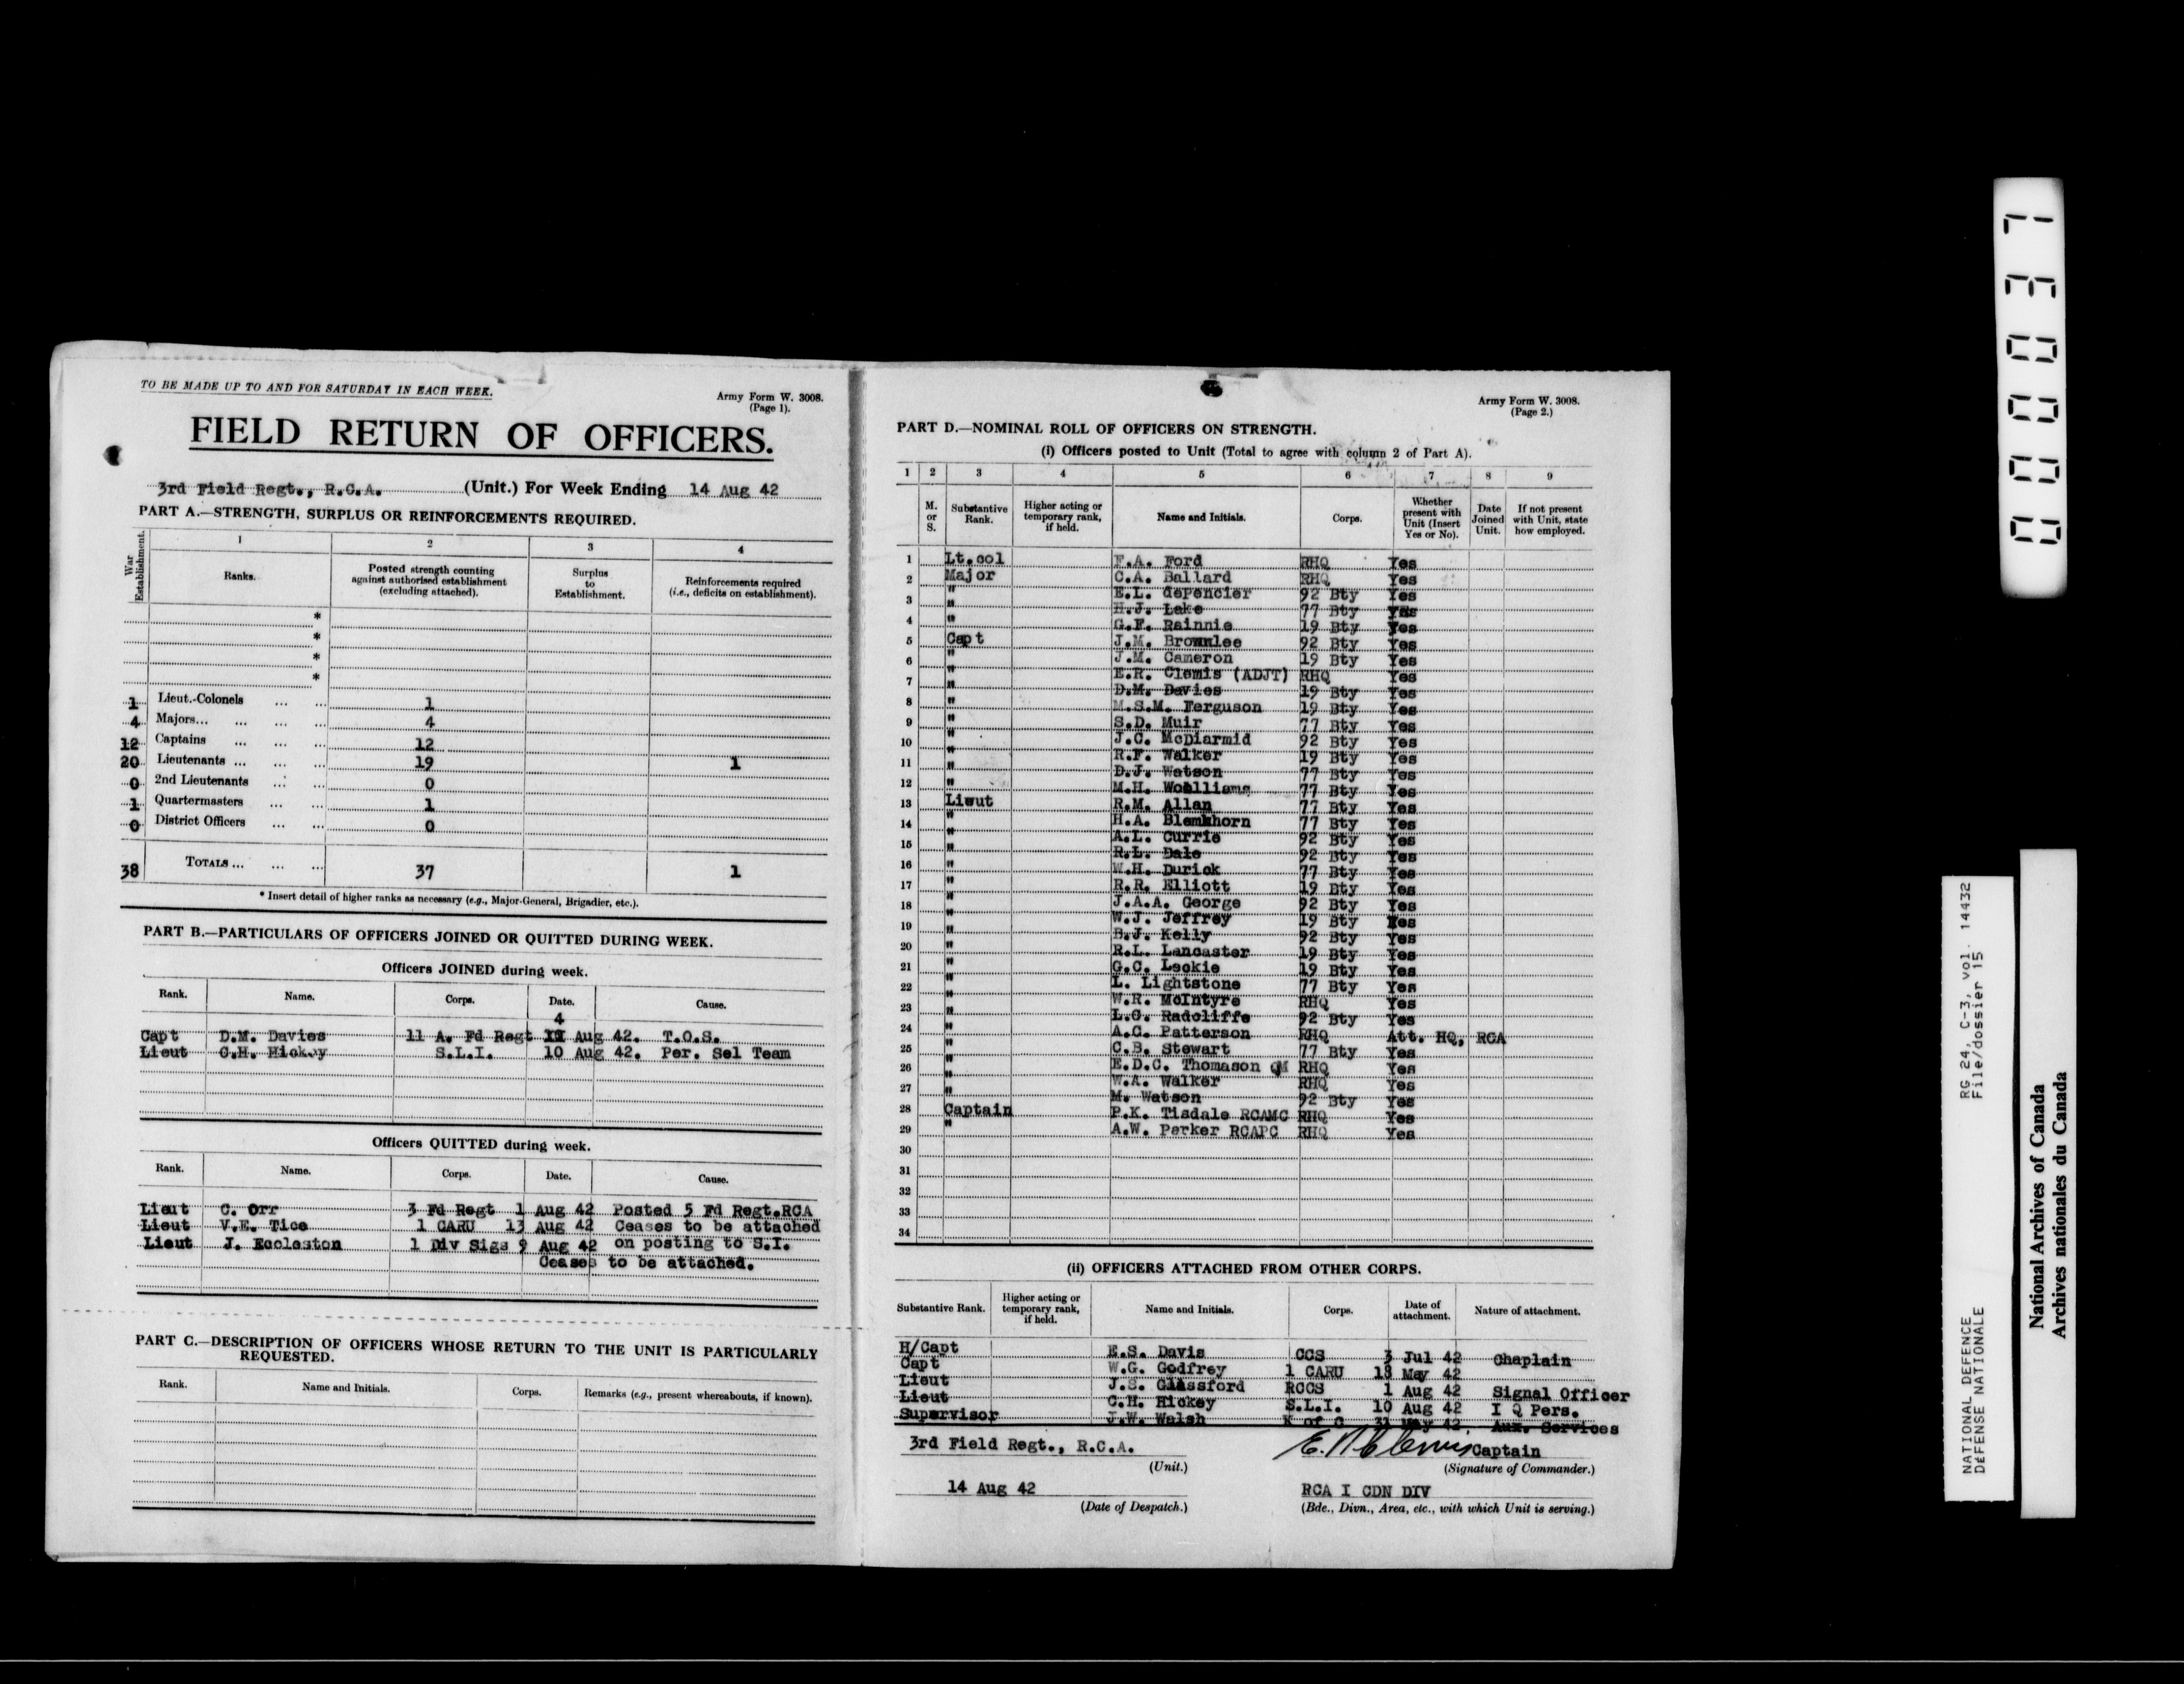 TO BE MADE UP TO AND FOR SATURDAY IN EACH WEEK.
Army Form W. 3008.
(Page 1).
FIELD RETURN OF OFFICERS.
3rd Field Regt., R.C.A. (Unit.) For Week Ending 14 Aug 42
PART A.—STRENGTH, SURPLUS OR REINFORCEMENTS REQUIRED.
War Establishment. 1 2 3 4
Ranks. Posted strength counting against authorised establishment (excluding attached). Surplus to Establishment. Reinforcements required (i.e., deficits on establishment).
*
*
*
*
1 Lieut.-Colonels ... ... 1
4 Majors... ... ... ... 4
12 Captains ... ... ... 12
20 Lieutenants ... ... ... 19 1
0 2nd Lieutenants ... ... 0
1 Quartermasters ... ... 1
0 District Officers ... ... 0
38 TOTALS ... ... ... 37 1
* Insert detail of higher ranks as necessary (e.g., Major-General, Brigadier, etc.).
PART B.—PARTICULARS OF OFFICERS JOINED OR QUITTED DURING WEEK.
Officers JOINED during week.
Rank. Name. Corps. Date. Cause.
4
Capt D.M. Davies 11 A. Fd Regt 11 Aug 42. T.O.S.
Lieut C.H. Hickey S.L.I. 10 Aug 42. Per. Sel Team
Officers QUITTED during week.
Rank. Name. Corps. Date. Cause.
Lieut C. Orr 3 Fd Regt 1 Aug 42 Posted 5 Fd Regt.RCA
Lieut V.E. Tice 1 CARU 13 Aug 42 Ceases to be attached
Lieut J. Eccleston 1 Div Sigs 9 Aug 42 on posting to S.I.
Ceases to be attached.
PART C.—DESCRIPTION OF OFFICERS WHOSE RETURN TO THE UNIT IS PARTICULARLY
REQUESTED.
Rank. Name and Initials. Corps. Remarks (e.g., present whereabouts, if known).
Army Form W. 3008.
(Page 2.)
PART D.—NOMINAL ROLL OF OFFICERS ON STRENGTH.
(i) Officers posted to Unit (Total to agree with column 2 of Part A).
1 2 3 4 5 6 7 8 9
M. or S. Substantive Rank. Higher acting or temporary rank, if held. Name and Initials. Corps. Whether present with Unit (Insert Yes or No). Date Joined Unit. If not present with Unit, state how employed.
1 Lt.col F.A. Ford RHQ Yes
2 Major C.A. Ballard RHQ Yes
" E.L. dePencier 92 Bty Yes
3 " H.J. Lake 77 Bty Yes
4 " G.F. Rainnie 19 Bty Yes
5 Capt J.M. Brownlee 92 Bty Yes
6 " J.M. Cameron 19 Bty Yes
7 " E.R. Clemis (ADJT) RHQ Yes
" D.M. Davies 19 Bty Yes
8 " M.S.M. Ferguson 19 Bty Yes
9 " S.D. Muir 77 Bty Yes
10 " J.C. McDiarmid 92 Bty Yes
11 " R.F. Walker 19 Bty Yes
" D.J. Watson 77 Bty Yes
12 " M.H. Woolliams 77 Bty Yes
13 Lieut R.M. Allan 77 Bty Yes
14 " H.A. Blenkhorn 77 Bty Yes
" A.L. Currie 92 Bty Yes
15 " R.L. Dale 92 Bty Yes
16 " W.H. Durick 77 Bty Yes
17 " R.R. Elliott 19 Bty Yes
18 " J.A.A. George 92 Bty Yes
19 " W.J. Jeffrey 19 Bty Yes
" B.J. Kelly 92 Bty Yes
20 " R.L. Lancaster 19 Bty Yes
21 " G.C. Leckie 19 Bty Yes
22 " L. Lightstone 77 Bty Yes
23 " W.R. McIntyre RHQ Yes
" L.G. Radcliffe 92 Bty Yes
24 " A.C. Patterson RHQ Att. HQ, RCA
25 " C.B. Stewart 77 Bty Yes
26 " E.D.C. Thomason QM RHQ Yes
27 " W.A. Walker RHQ Yes
" M. Watson 92 Bty Yes
28 Captain P.K. Tisdale RCAMC RHQ Yes
29 " A.W. Parker RCAPC RHQ Yes
30
31
32
33
34
(ii) OFFICERS ATTACHED FROM OTHER CORPS.
Substantive Rank. Higher acting or temporary rank, if held. Name and Initials. Corps. Date of attachment. Nature of attachment.
H/Capt E.S. Davis CCS 3 Jul 42 Chaplain
Capt W.G. Godfrey 1 CARU 18 May 42
Lieut J.S. Glassford RCCS 1 Aug 42 Signal Officer
Lieut C.H. Hickey S.L.I. 10 Aug 42 I Q Pers.
Supervisor J.W. Walsh K of C 31 May 42. Aux. Services
3rd Field Regt., R.C.A. E.R Clemis Captain
(Unit.) (Signature of Commander.)
14 Aug 42 RCA I CDN DIV
(Date of Despatch.) (Bde., Divn., Area, etc., with which Unit is serving.)
000037
NATIONAL DEFENCE RG 24, C-3, vol. 14432
DÉFENSE NATIONALE File/dossier 15
National Archives of Canada
Archives nationales du Canada